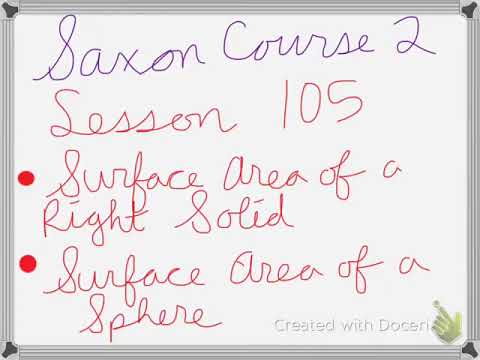 Saxon Course 2
Lesson 105
Surface Area of a
Right Solid
Surface Area of a
Sphere
Created with Doceri